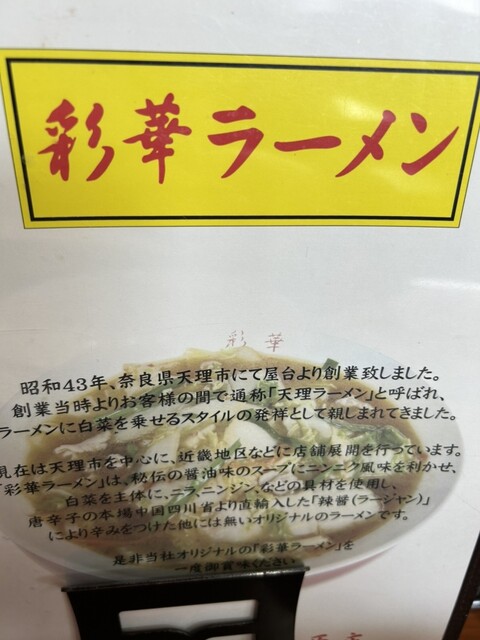 彩華ラーメン
彩華
昭和43年、奈良県天理市にて屋台より創業致しました。
創業当時よりお客様の間で通称「天理ラーメン」と呼ばれ、
ラーメンに白菜を乗せるスタイルの発祥として親しまれてきました。
現在は天理市を中心に、近畿地区などに店舗展開を行っています。
「彩華ラーメン」は、秘伝の醤油味のスープにニンニク風味を利かせ、
白菜を主体に、ニラ、ニンジン、などの具材を使用し、
唐辛子の本場中国四川省より直輸入した「辣醤(ラージャン)」
により辛みをつけた他には無いオリジナルのラーメンです。
是非当社オリジナルの「彩華ラーメン」を
一度御賞味ください